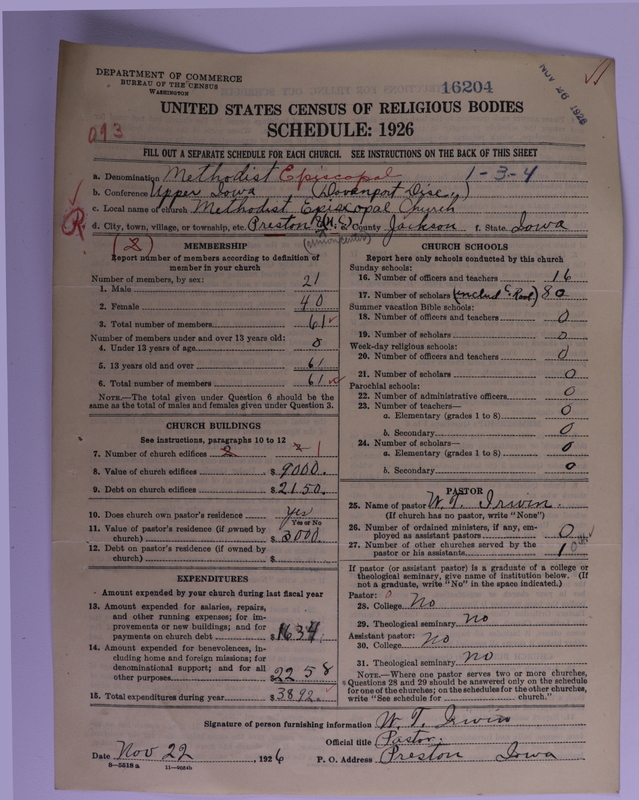 DEPARTMENT OF COMMERCE
BUREAU OF THE CENSUS
WASHINGTON
16204
NOV 26 1926
UNITED STATES CENSUS OF RELIGIOUS BODIES
SCHEDULE: 1926
a93
FILL OUT A SEPARATE SCHEDULE FOR EACH CHURCH. SEE INSTRUCTIONS ON THE BACK OF THIS SHEET
a. Denomination Methodist Episcopal 1-3-4
b. Conference Upper Iowa (Davenport Disc.)
c. Local name of church Methodist Episcopal Church
R
d. City, town, village, or township, etc. Preston e. County Jackson f. State Iowa
(2)
MEMBERSHIP
Report number of members according to definition of
member in your church
Number of members, by sex:
1. Male 21
2. Female 40
3. Total number of members 61
Number of members under and over 13 years old:
4. Under 13 years of age 0
5. 13 years old and over 61
6. Total number of members 61
NOTE.—The total given under Question 6 should be the
same as the total of males and females given under Question 3.
CHURCH BUILDINGS
See instructions, paragraphs 10 to 12
7. Number of church edifices 2 1
8. Value of church edifices $ 9000.
9. Debt on church edifices $ 2150.
10. Does church own pastor's residence yes
Yes or No
11. Value of pastor's residence (if owned by
church) $ 3000.
12. Debt on pastor's residence (if owned by
church) $
EXPENDITURES
Amount expended by your church during last fiscal year
13. Amount expended for salaries, repairs,
and other running expenses; for im-
provements or new buildings; and for
payments on church debt $ 1634.
14. Amount expended for benevolences, in-
cluding home and foreign missions; for
denominational support; and for all
other purposes 2258
15. Total expenditures during year $ 3892.
CHURCH SCHOOLS
Report here only schools conducted by this church
Sunday schools:
16. Number of officers and teachers 16
17. Number of scholars 80
Summer vacation Bible schools:
18. Number of officers and teachers 0
19. Number of scholars 0
Week-day religious schools:
20. Number of officers and teachers 0
21. Number of scholars 0
Parochial schools:
22. Number of administrative officers 0
23. Number of teachers—
a. Elementary (grades 1 to 8) 0
b. Secondary 0
24. Number of scholars—
a. Elementary (grades 1 to 8) 0
b. Secondary 0
PASTOR
25. Name of pastor W. T. Irwin.
(If church has no pastor, write "None")
26. Number of ordained ministers, if any, em-
ployed as assistant pastors 0
27. Number of other churches served by the
pastor or his assistants 1
If pastor (or assistant pastor) is a graduate of a college or
theological seminary, give name of institution below. (If
not a graduate, write "No" in the space indicated.)
Pastor:
28. College No
29. Theological seminary no
Assistant pastor:
30. College No
31. Theological seminary no
NOTE.—Where one pastor serves two or more churches,
Questions 28 and 29 should be answered only on the schedule
for one of the churches; on the schedules for the other churches,
write "See schedule for church."
Signature of person furnishing information W. T. Irwin
Official title Pastor.
Date Nov 22, 1926 P. O. Address Preston Iowa
8—5518 a 11—9034b